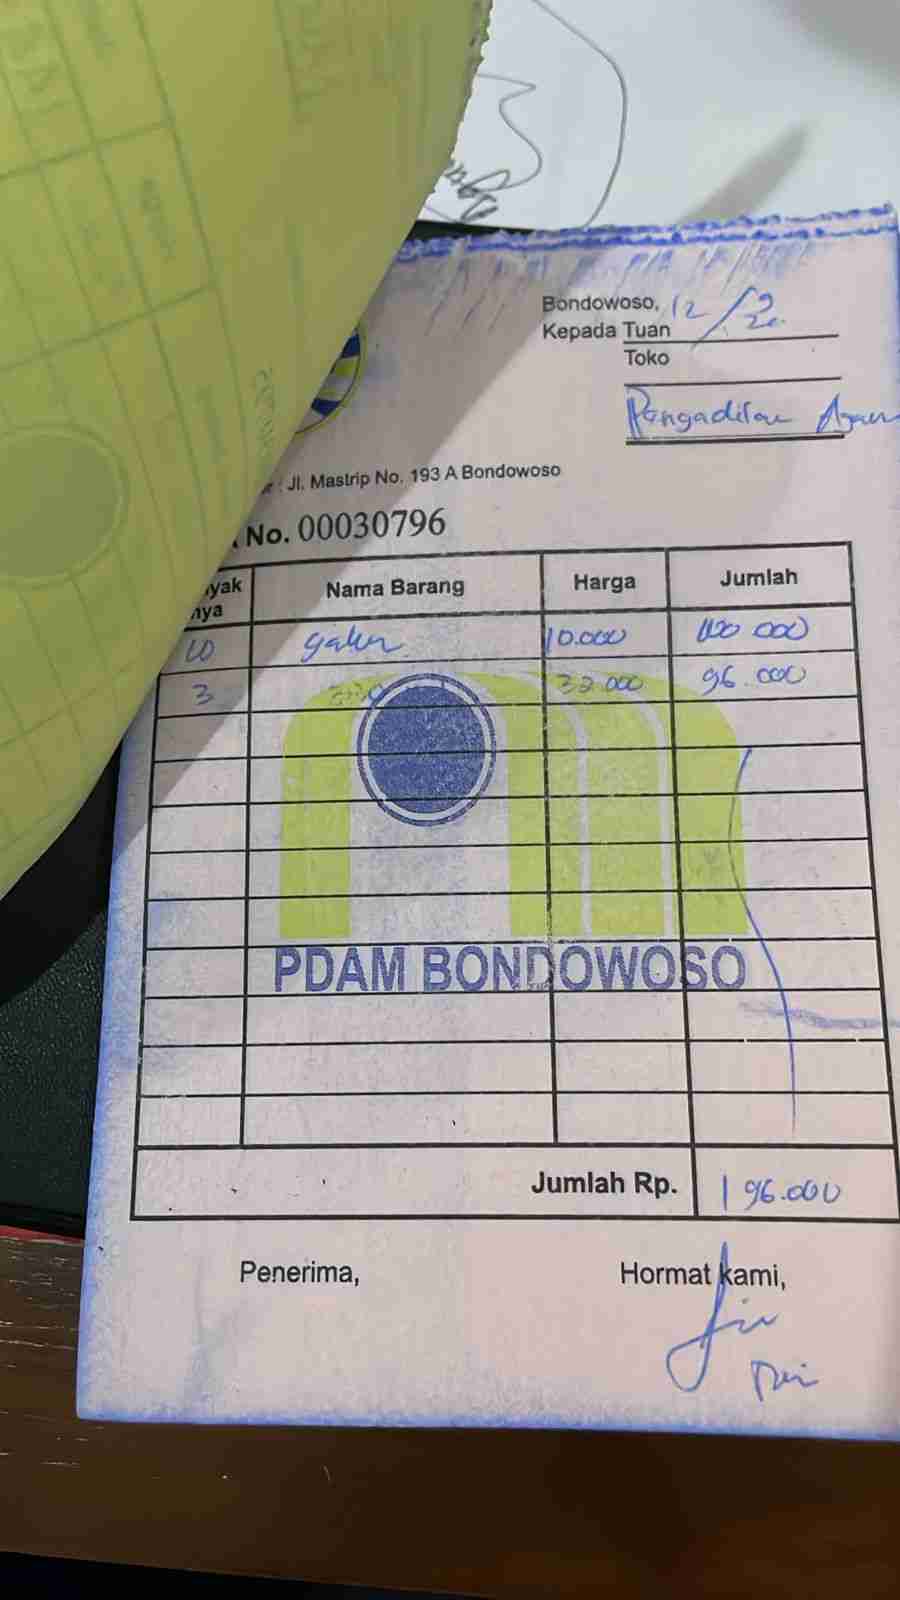 Bondowoso, 12/9 20
Kepada Tuan
Toko
Pengadilan Agam
Jl. Mastrip No. 193 A Bondowoso
No. 00030796
yak nya Nama Barang Harga Jumlah
10 galon 10.000 100 000
3 330 32.000 96.000
PDAM BONDOWOSO
Jumlah Rp. 196.000
Penerima, Hormat kami,